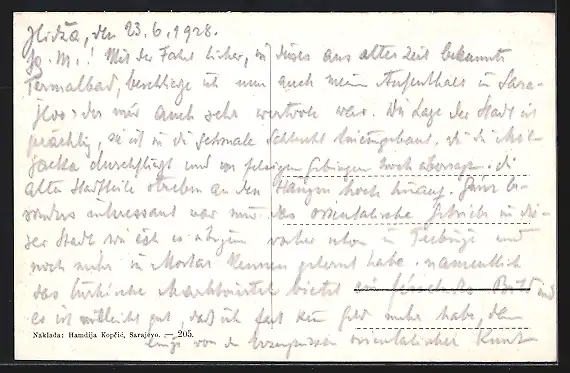 Ilidža, den 23.6.1928.
Mit der Fahrt hieher, in dieses aus alter Zeit bekannte
Termalbad, beschließe ich nun auch meinen Aufenthalt in Sara-
jevo, der mir auch sehr wertvoll war. Die Lage der Stadt ist
prächtig, sie ist in die schmale Schlucht hineingebaut, die die Mil-
jacka durchfließt und von felsigen Gebirgen hoch überragt. Die
alten Stadtteile streben an den Hängen hoch hinauf. Ganz be-
sonders interessant war mir das orientalische Getriebe in die-
ser Stadt wie ich es übrigens vorher schon in Trebinje und
noch mehr in Mostar kennen gelernt habe. namentlich
das türkische Marktviertel bietet ein fesselndes Bild und
es ist vielleicht gut, daß ich fast kein Geld mehr habe, den
von den Erzeugnissen orientalischer Kunst-
Naklada: Hamdija Kopčić, Sarajevo. — 205.